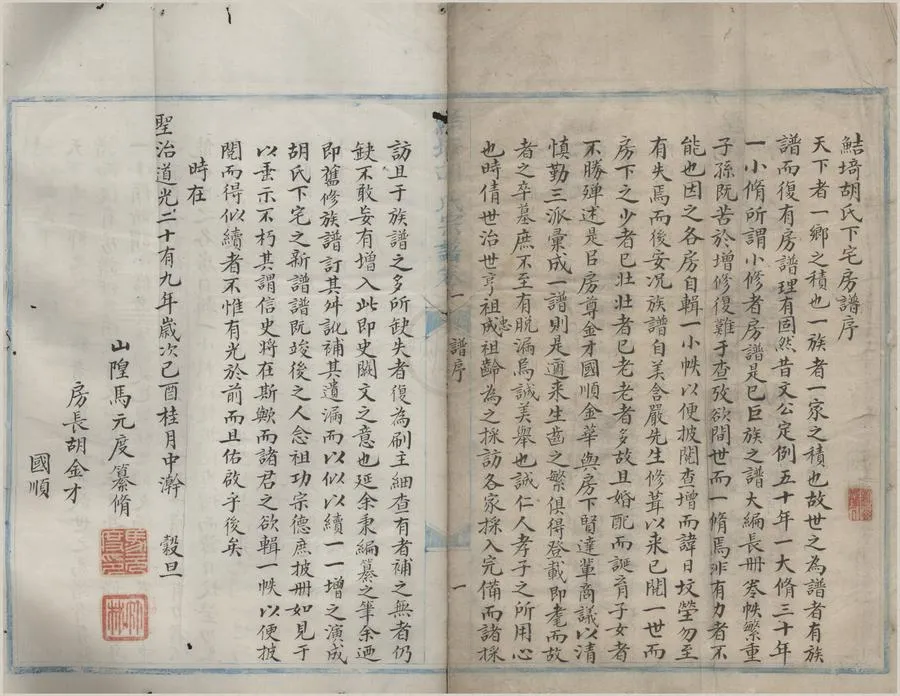 鮚埼胡氏下宅房譜序
天下者一鄉之積也一族者一家之積也故世之為譜者有族
譜而復有房譜理有固然昔文公定例五十年一大脩三十年
一小脩所謂小修者房譜是已巨族之譜大編長冊卷帙繁重
子孫既苦於增修復難于查攷欲間世而一脩焉非有力者不
能也因之各房自輯一小帙以便披閱查增而諱日墳塋勿至
有失焉而後安况族譜自美含嚴先生修葺以来已閱一世而
房下之少者已壯壯者已老老者多故且婚配而誕育子女者
不勝殫述是㠯房尊金才國順金華與房下賢達輩商議以清
慎勤三派彙成一譜則是邇来生齒之繁俱得登載即耄而故
者之卒墓庶不至有脫漏焉誠美舉也誠仁人孝子之所用心
也時倩世治世亨祖成忠祖齡為之採訪各家採入完備而諸採
譜序
一
訪且于族譜之多所缺失者復為刷主細查有者補之無者仍
缺不敢妄有增入此即史闕文之意也延余秉編纂之筆余迺
即舊修族譜訂其舛訛補其遺漏而以似以續一一增之演成
胡氏下宅之新譜譜既竣後之人念祖功宗德庶披冊如見于
以垂示不朽其謂信史將在斯歟而諸君之欲輯一帙以便披
閱而得似續者不惟有光於前而且佑啟乎後矣
時在
聖治道光二十有九年歲次己酉桂月中澣 穀旦
山隍馬元度纂脩
房長胡金才
國順